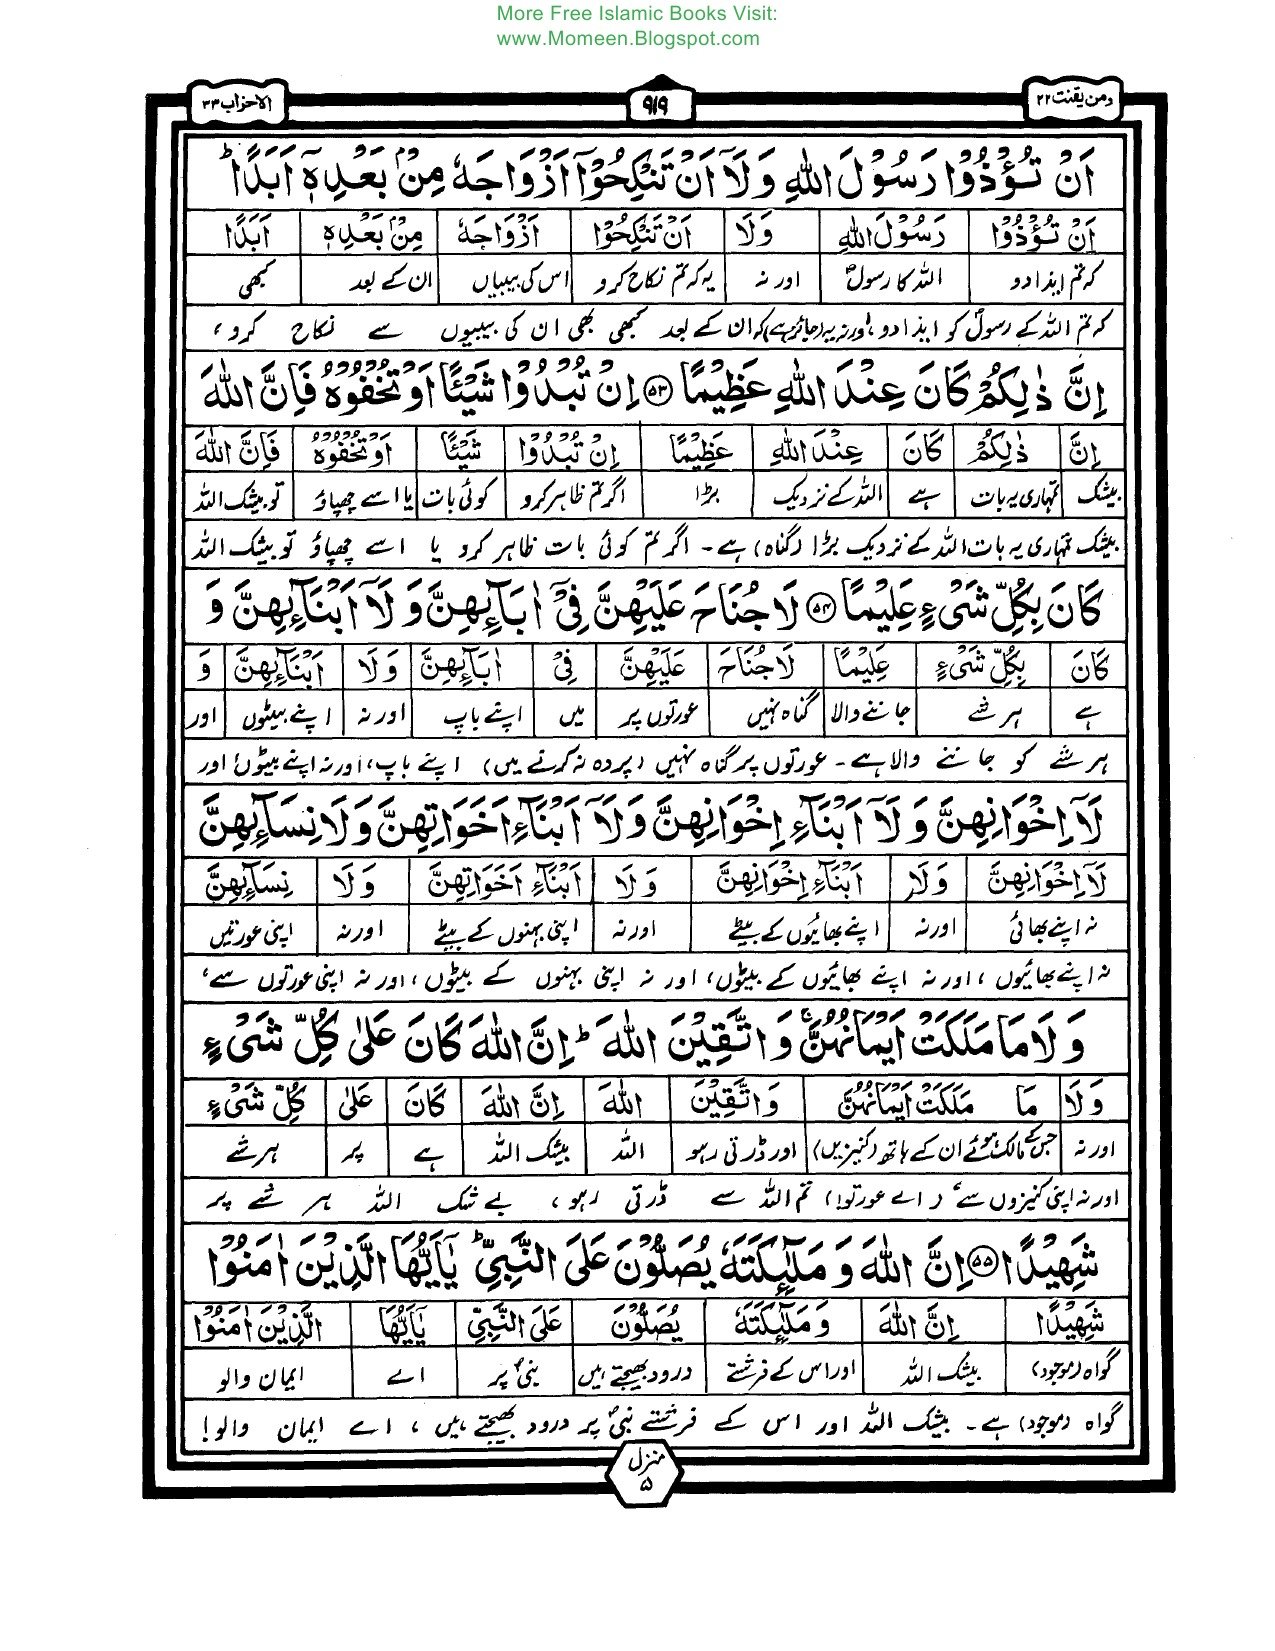 More Free Islamic Books Visit:
www.Momeen.Blogspot.com
ومن یقنت ۲۲
۹۱۹
الاحزاب ۳۳
اَنْ تُؤْذُوْا رَسُوْلَ اللّٰهِ وَلَاۤ اَنْ تَنْكِحُوْۤا اَزْوَاجَهٗ مِنْۢ بَعْدِهٖۤ اَبَدًا ؕ
اَنْ تُؤْذُوْا رَسُوْلَ اللّٰهِ وَلَا اَنْ تَنْكِحُوْۤا اَزْوَاجَهٗ مِنْۢ بَعْدِهٖۤ اَبَدًا
کہ تم ایذا دو اللہ کا رسولؐ اور نہ یہ کہ تم نکاح کرو اس کی بیبیاں ان کے بعد کبھی
کہ تم اللہ کے رسولؐ کو ایذا دو، اور نہ یہ (جائز ہے) کہ ان کے بعد کبھی بھی ان کی بیبیوں سے نکاح کرو،
اِنَّ ذٰلِكُمْ كَانَ عِنْدَ اللّٰهِ عَظِيْمًا ﴿۵۳﴾ اِنْ تُبْدُوْا شَيْـًٔا اَوْ تُخْفُوْهُ فَاِنَّ اللّٰهَ
اِنَّ ذٰلِكُمْ كَانَ عِنْدَ اللّٰهِ عَظِيْمًا اِنْ تُبْدُوْا شَيْـًٔا اَوْ تُخْفُوْهُ فَاِنَّ اللّٰهَ
بیشک تمہاری یہ بات ہے اللہ کے نزدیک بڑا اگر تم ظاہر کرو کوئی بات یا اسے چھپاؤ تو بیشک اللہ
بیشک تمہاری یہ بات اللہ کے نزدیک بڑا (گناہ) ہے۔ اگر تم کوئی بات ظاہر کرو یا اسے چھپاؤ تو بیشک اللہ
كَانَ بِكُلِّ شَیْءٍ عَلِيْمًا ﴿۵۴﴾ لَا جُنَاحَ عَلَيْهِنَّ فِیْۤ اٰبَآئِهِنَّ وَلَاۤ اَبْنَآئِهِنَّ وَ
كَانَ بِكُلِّ شَیْءٍ عَلِيْمًا لَا جُنَاحَ عَلَيْهِنَّ فِیْ اٰبَآئِهِنَّ وَلَا اَبْنَآئِهِنَّ وَ
ہے ہر شے جاننے والا گناہ نہیں عورتوں پر میں اپنے باپ اور نہ اپنے بیٹوں اور
ہر شے کو جاننے والا ہے۔ عورتوں پر گناہ نہیں (پردہ نہ کرنے میں) اپنے باپ، اور نہ اپنے بیٹوں اور
لَاۤ اِخْوَانِهِنَّ وَلَاۤ اَبْنَآءِ اِخْوَانِهِنَّ وَلَاۤ اَبْنَآءِ اَخَوَاتِهِنَّ وَلَا نِسَآئِهِنَّ
لَاۤ اِخْوَانِهِنَّ وَلَا اَبْنَآءِ اِخْوَانِهِنَّ وَلَا اَبْنَآءِ اَخَوَاتِهِنَّ وَلَا نِسَآئِهِنَّ
نہ اپنے بھائی اور نہ اپنے بھائیوں کے بیٹے اور نہ اپنی بہنوں کے بیٹے اور نہ اپنی عورتیں
نہ اپنے بھائیوں، اور نہ اپنے بھائیوں کے بیٹوں، اور نہ اپنی بہنوں کے بیٹوں، اور نہ اپنی عورتوں سے،
وَلَا مَا مَلَكَتْ اَيْمَانُهُنَّ ۚ وَاتَّقِيْنَ اللّٰهَ ؕ اِنَّ اللّٰهَ كَانَ عَلٰى كُلِّ شَیْءٍ
وَلَا مَا مَلَكَتْ اَيْمَانُهُنَّ وَاتَّقِيْنَ اللّٰهَ اِنَّ اللّٰهَ كَانَ عَلٰى كُلِّ شَیْءٍ
اور نہ جس کے مالک ہوئے ان کے ہاتھ (کنیزیں) اور ڈرتی رہو اللہ بیشک اللہ ہے پر ہر شے
اور نہ اپنی کنیزوں سے، (اے عورتو!) تم اللہ سے ڈرتی رہو، بے شک اللہ ہر شے پر
شَهِيْدًا ﴿۵۵﴾ اِنَّ اللّٰهَ وَمَلٰٓئِكَتَهٗ يُصَلُّوْنَ عَلَى النَّبِیِّ ؕ يٰۤاَيُّهَا الَّذِيْنَ اٰمَنُوْا
شَهِيْدًا اِنَّ اللّٰهَ وَمَلٰٓئِكَتَهٗ يُصَلُّوْنَ عَلَى النَّبِیِّ يٰۤاَيُّهَا الَّذِيْنَ اٰمَنُوْا
گواہ (موجود) بیشک اللہ اور اس کے فرشتے درود بھیجتے ہیں نبیؐ پر اے ایمان والو
گواہ (موجود) ہے۔ بیشک اللہ اور اس کے فرشتے نبیؐ پر درود بھیجتے ہیں، اے ایمان والو!
منزل ۵